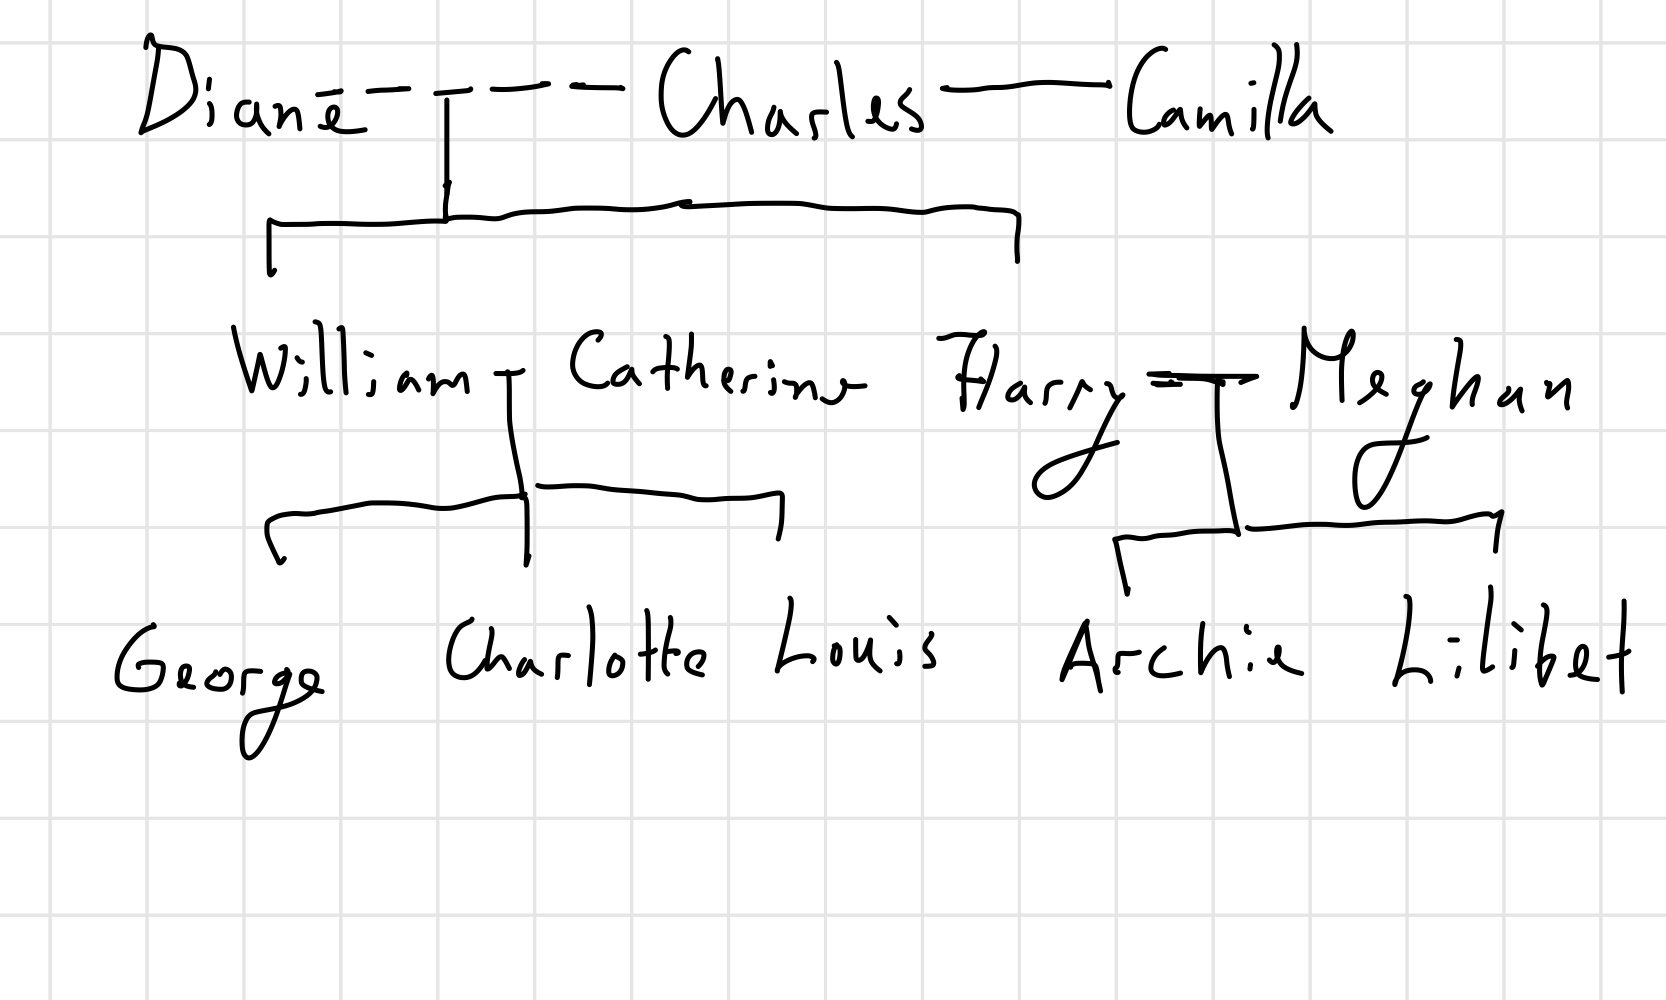 Diane Charles Camilla
William Catherine Harry Meghan
George Charlotte Louis Archie Lilibet